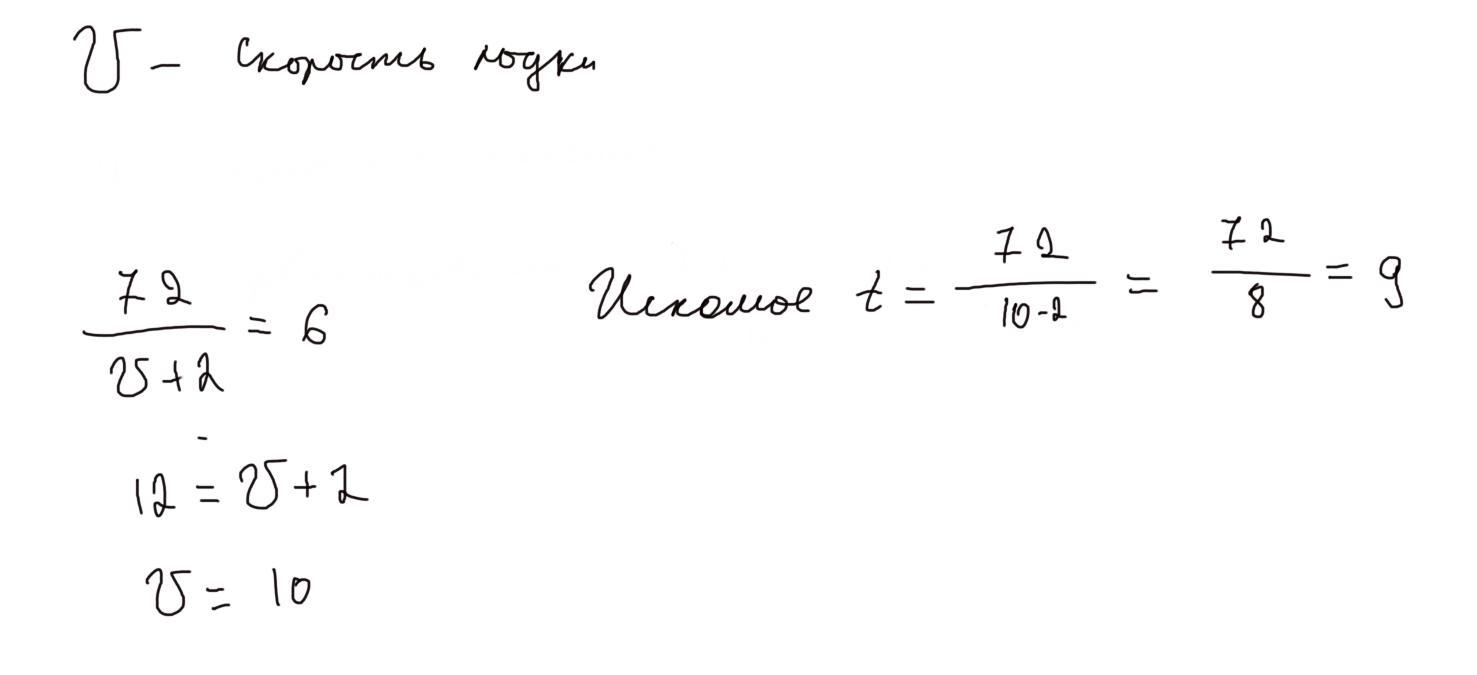 v – скорость лодки
72/(v+2) = 6
12 = v+2
v = 10
Искомое t = 72/(10-2) = 72/8 = 9